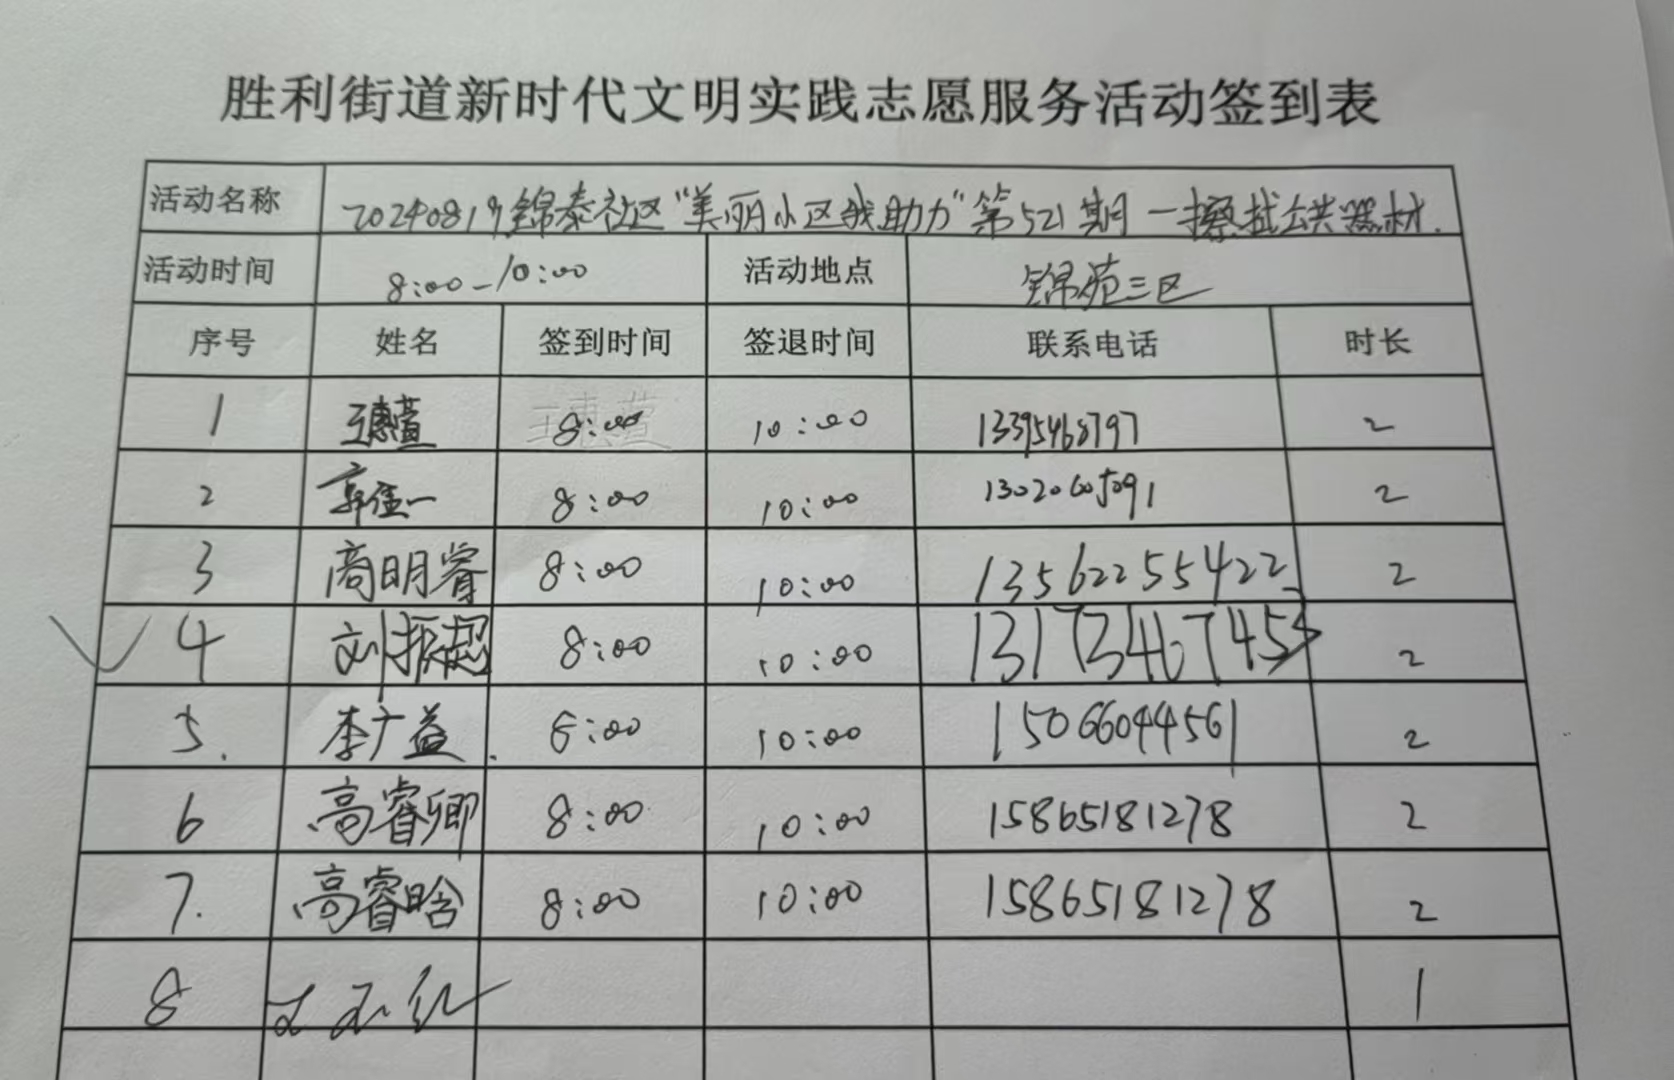 胜利街道新时代文明实践志愿服务活动签到表
活动名称 20240819锦泰社区“美丽小区我助力”第521期一擦拭公共器材.
活动时间 8:00-10:00 活动地点 锦苑三区
序号 姓名 签到时间 签退时间 联系电话 时长
1 王惠萱 8:00 10:00 13395468797 2
2 郭佳一 8:00 10:00 13020605091 2
3 商明睿 8:00 10:00 13562255422 2
4 刘振超 8:00 10:00 13173467453 2
5. 李广益. 8:00 10:00 15066044561 2
6 高睿卿 8:00 10:00 15865181278 2
7. 高睿晗 8:00 10:00 15865181278 2
8 1